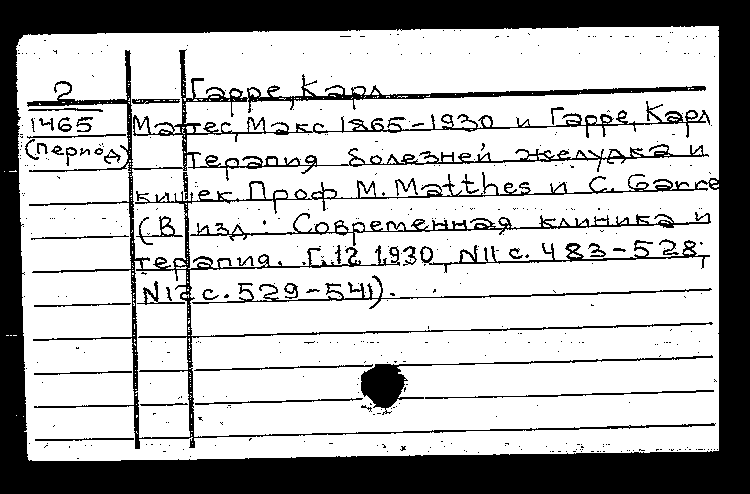 2 Гарре, Карл
1465 Маттес, Макс 1865-1930 и Гарре, Карл
(период) Терапия болезней желудка и
кишек. Проф. M. Matthes и C. Garre
(В изд.: Современная клиника и
терапия. Г.12 1930, N11 с. 483-528;
N12 с. 529-541).